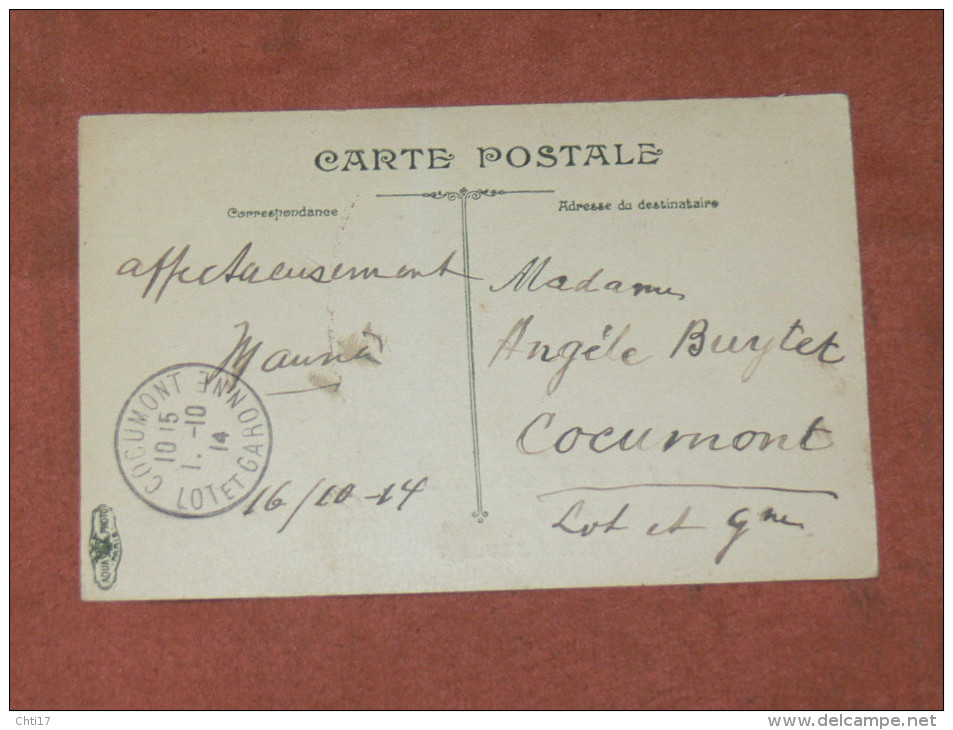 CARTE POSTALE
Correspondance
Adresse du destinataire
affectueusement
16/10-14
Madame
Angéle Buytet
Cocumont
Lot et Gne
COCUMONT
LOT ET GARONNE
10 15
1. -10
14
AQUA PHOTO
PARIS
Chti17
www.delcampe.net